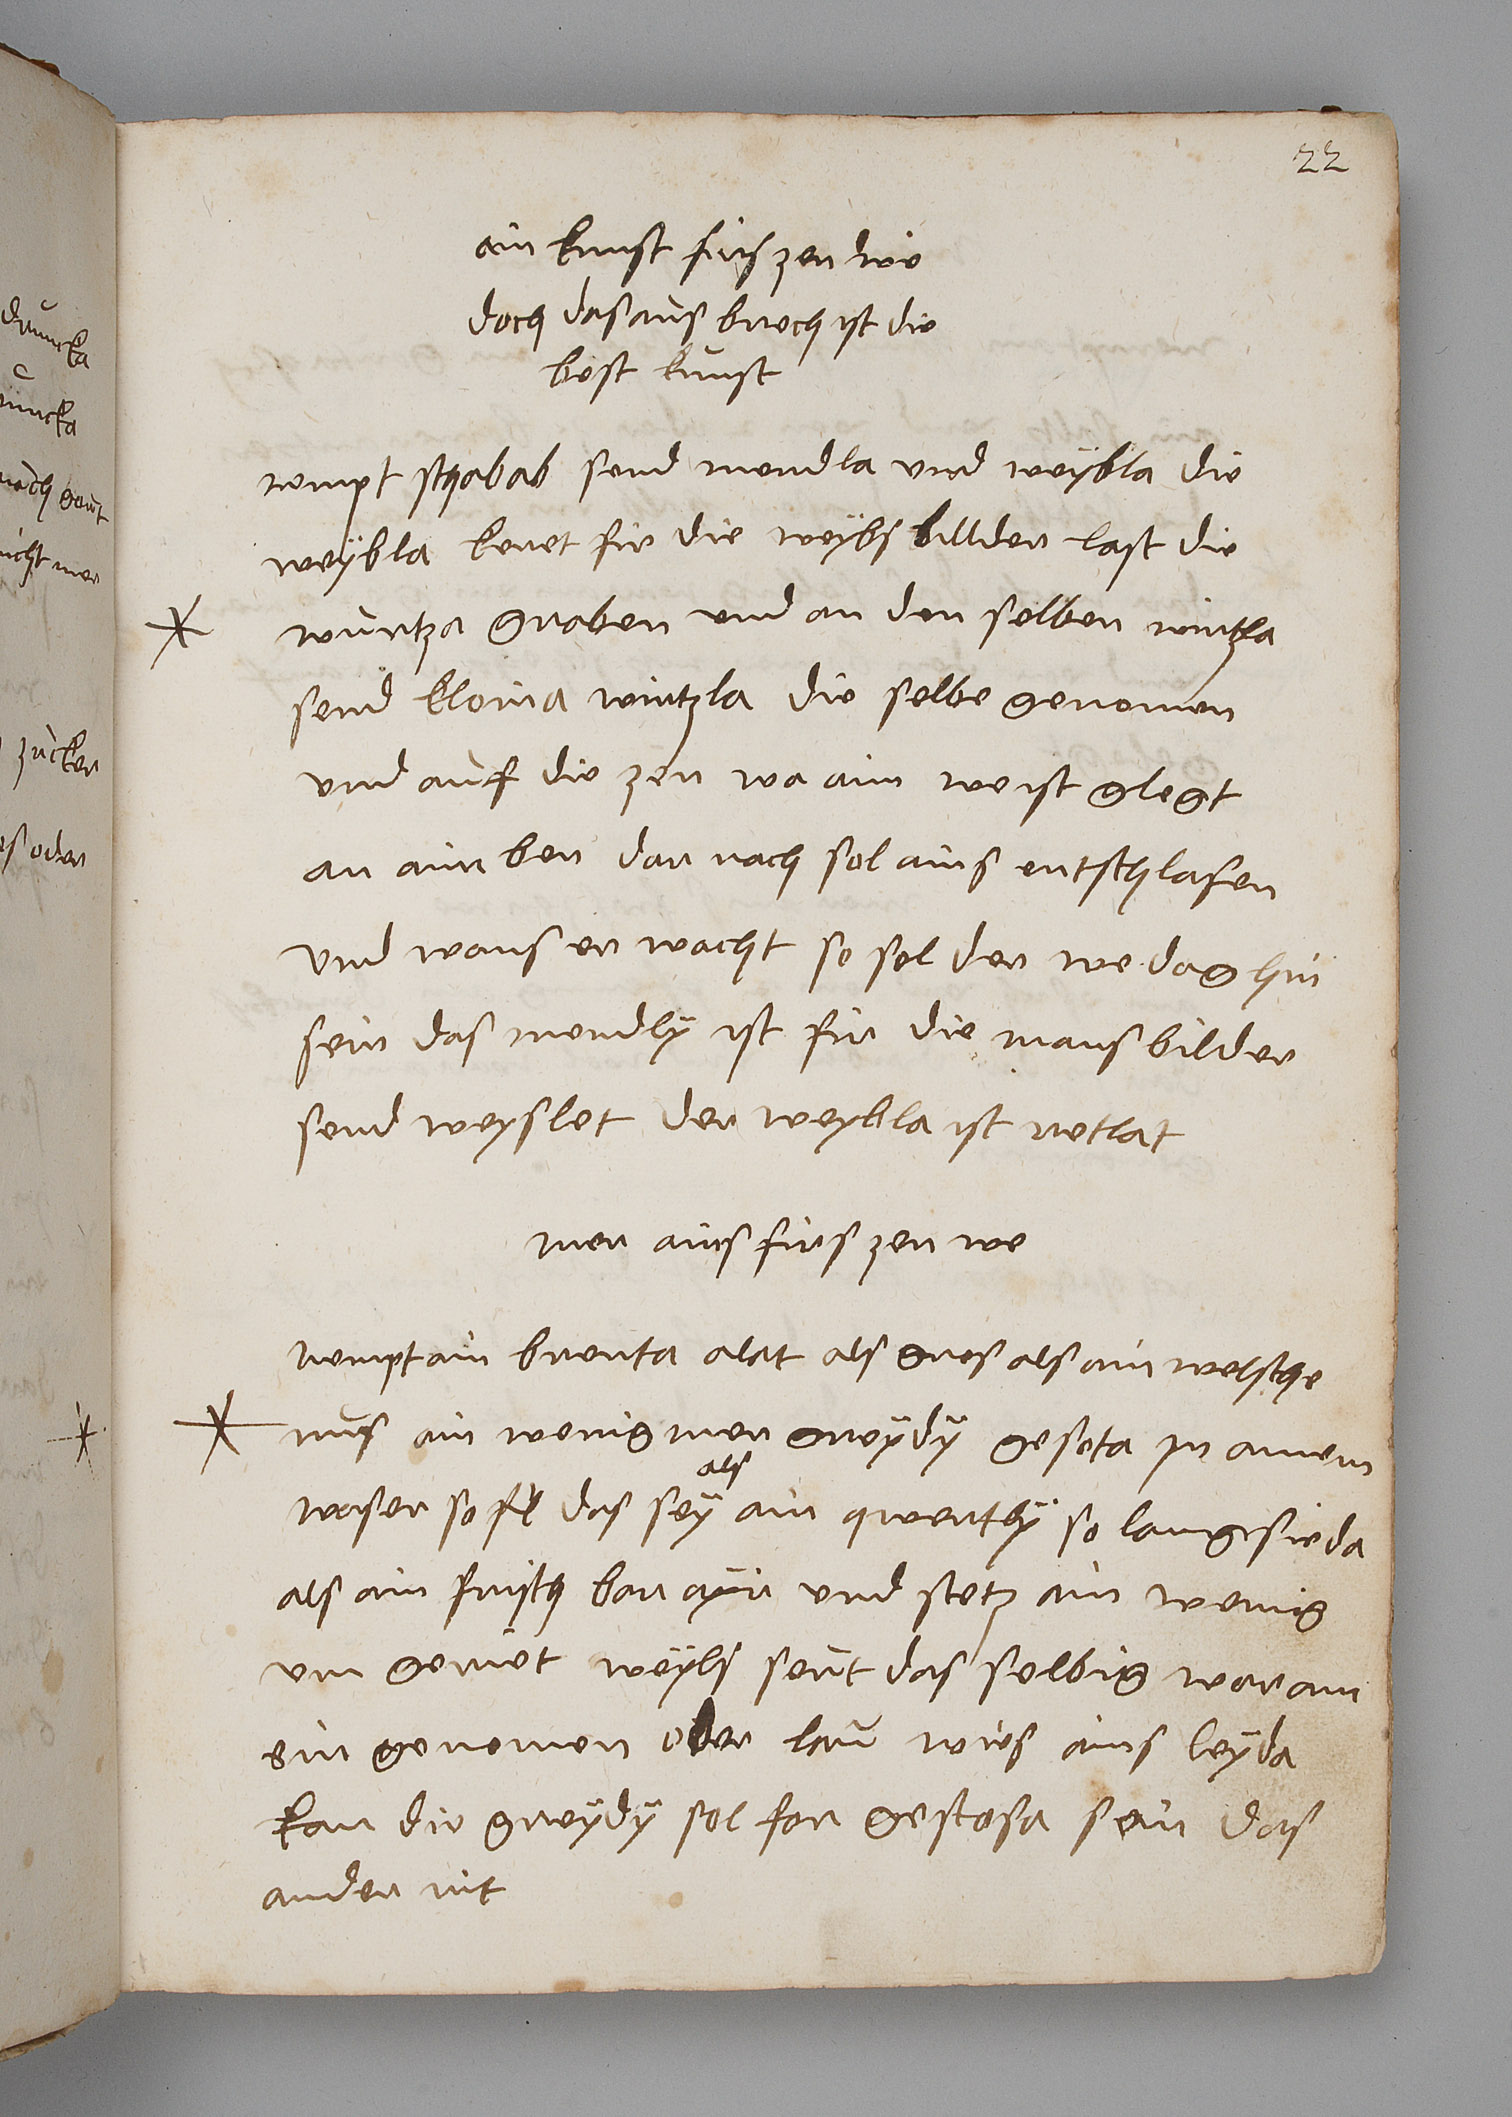 22
ain kunst firs zen we
doch das aus brech ist die
best kunst
nempt schabab send mendla und weÿbla die
weÿbla keret fir die weÿbs billder last die
wurtza graben und an den selben wirtzla
send kloina wirtzla die selbe genomen
und auf die zen wa aim we ist glegt
an aim ber dar nach sol ains entschlafen
und wans er wacht so sol der we dag hin
sein das mendlÿ ist fir die mansbilder
send weyslet der weybla ist retlat
mer ains firs zen we
nempt ain brenta alat als gros als ain welsche
nus ain wenig mer greÿdÿ geseta in ainem
waser so fil das seÿ als ain qwentlÿ so lang sieda
als ain frisch bar ayir und stetz ain wenig
um geriet weÿls seut das selbig war am
ein genomen oder lau wies ains leÿda
kan die greydÿ sol for gestosa sein das
ander nit
druncka
nach gout
nicht mer
zucker
es oder